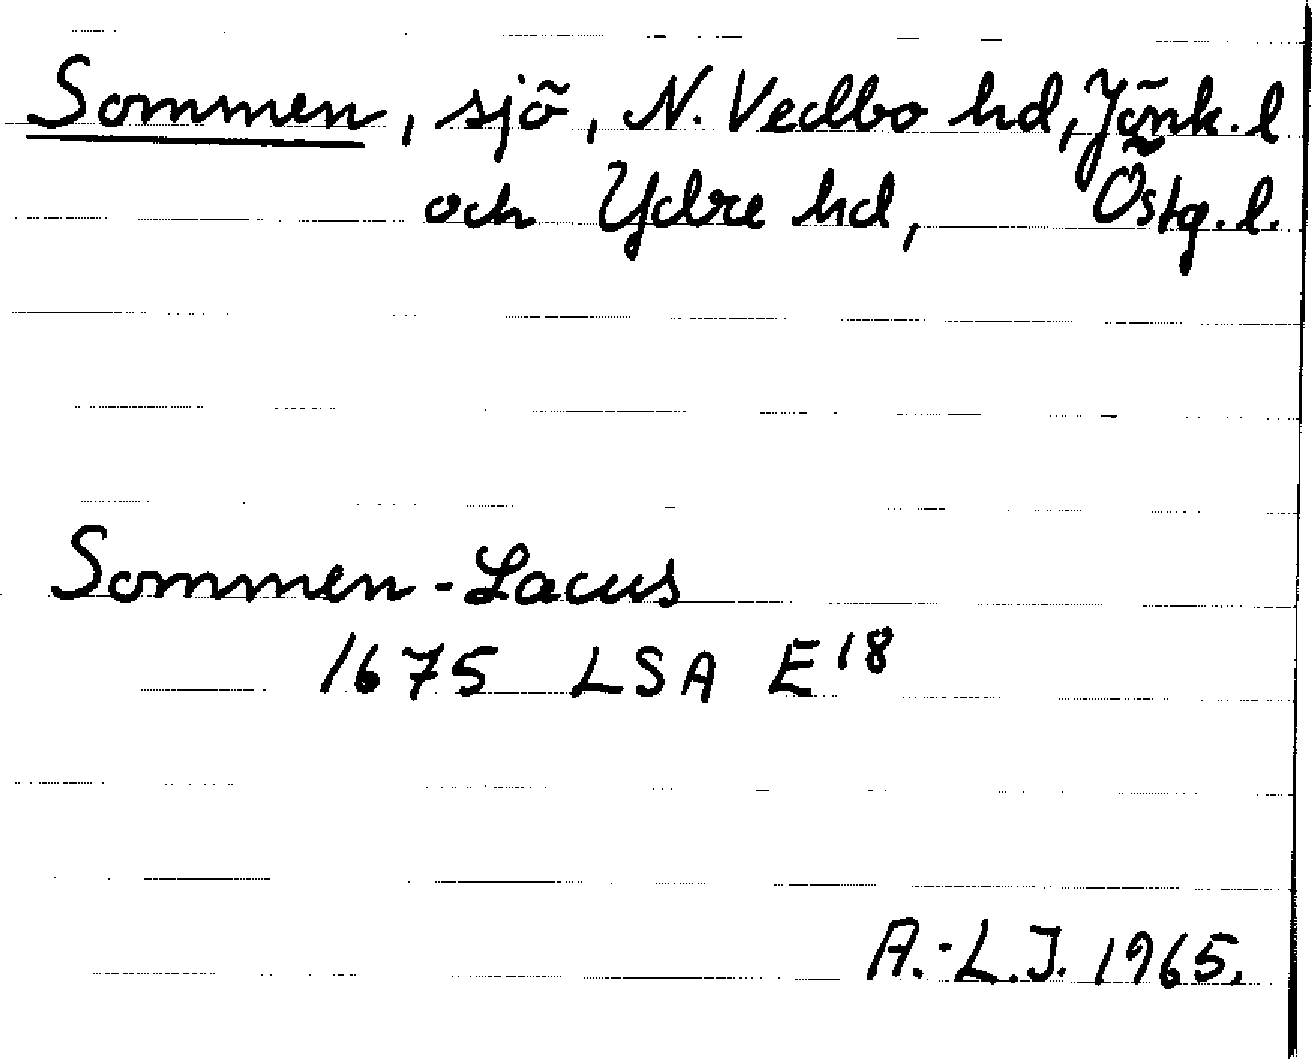 Sommen, sjö, N. Vedbo hd, Jönk. l
och Ydre hd, Östg. l.
Sommen-Lacus
1675 LSA E18
A.-L.J. 1965.